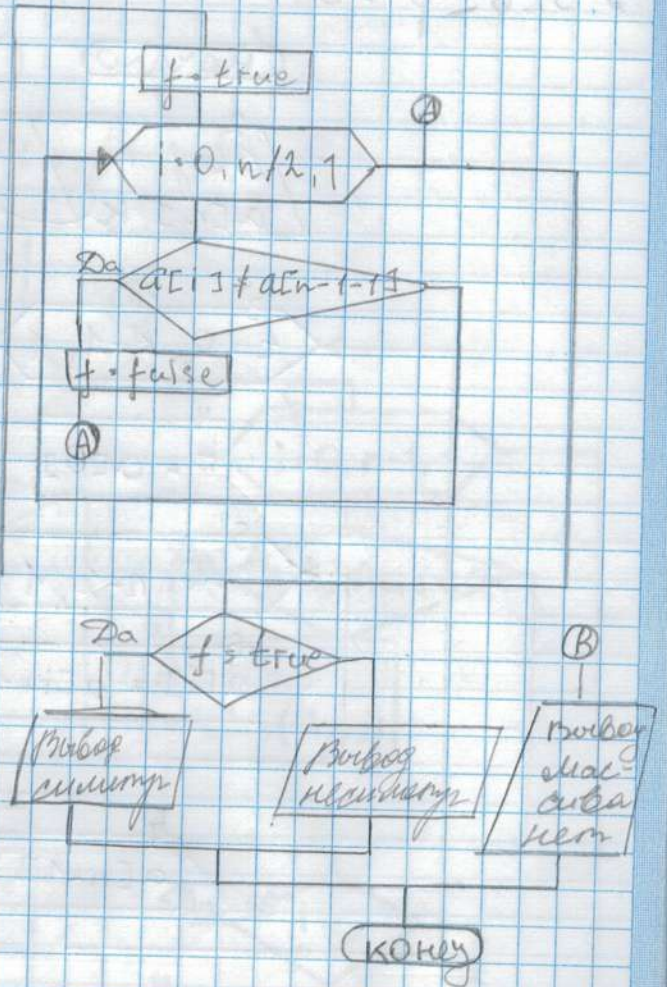 f = true
A
i = 0, n/2, 1
Да
a[i] ≠ a[n-1-1]
f = false
A
Да
f = true
B
Вывод
симметр
Вывод
несимметр
Вывод
мас-
сива
нет
конец